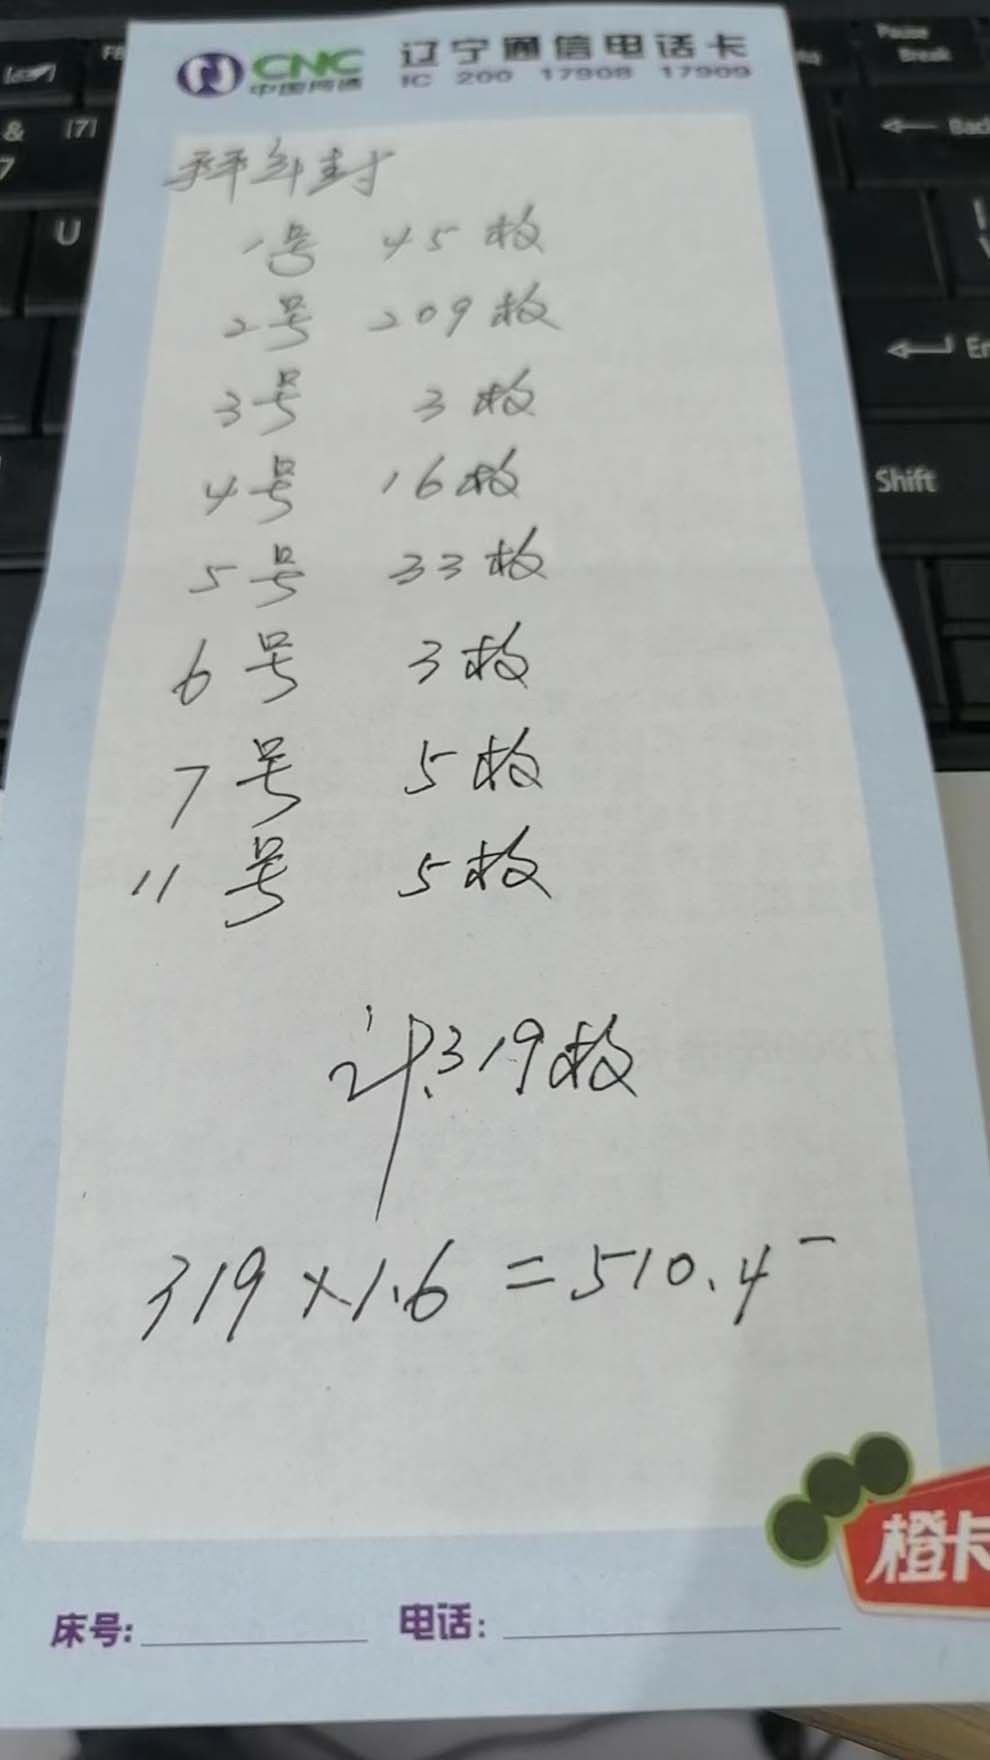 CNC 辽宁通信电话卡
中国网通 IC 200 17908 17909
拜年封
1号 45枚
2号 209枚
3号 3枚
4号 16枚
5号 33枚
6号 3枚
7号 5枚
11号 5枚
计319枚
319×1.6=510.4-
橙卡
床号: 电话:
Pause
Break
F8
& [7]
7
U
Back
Shift